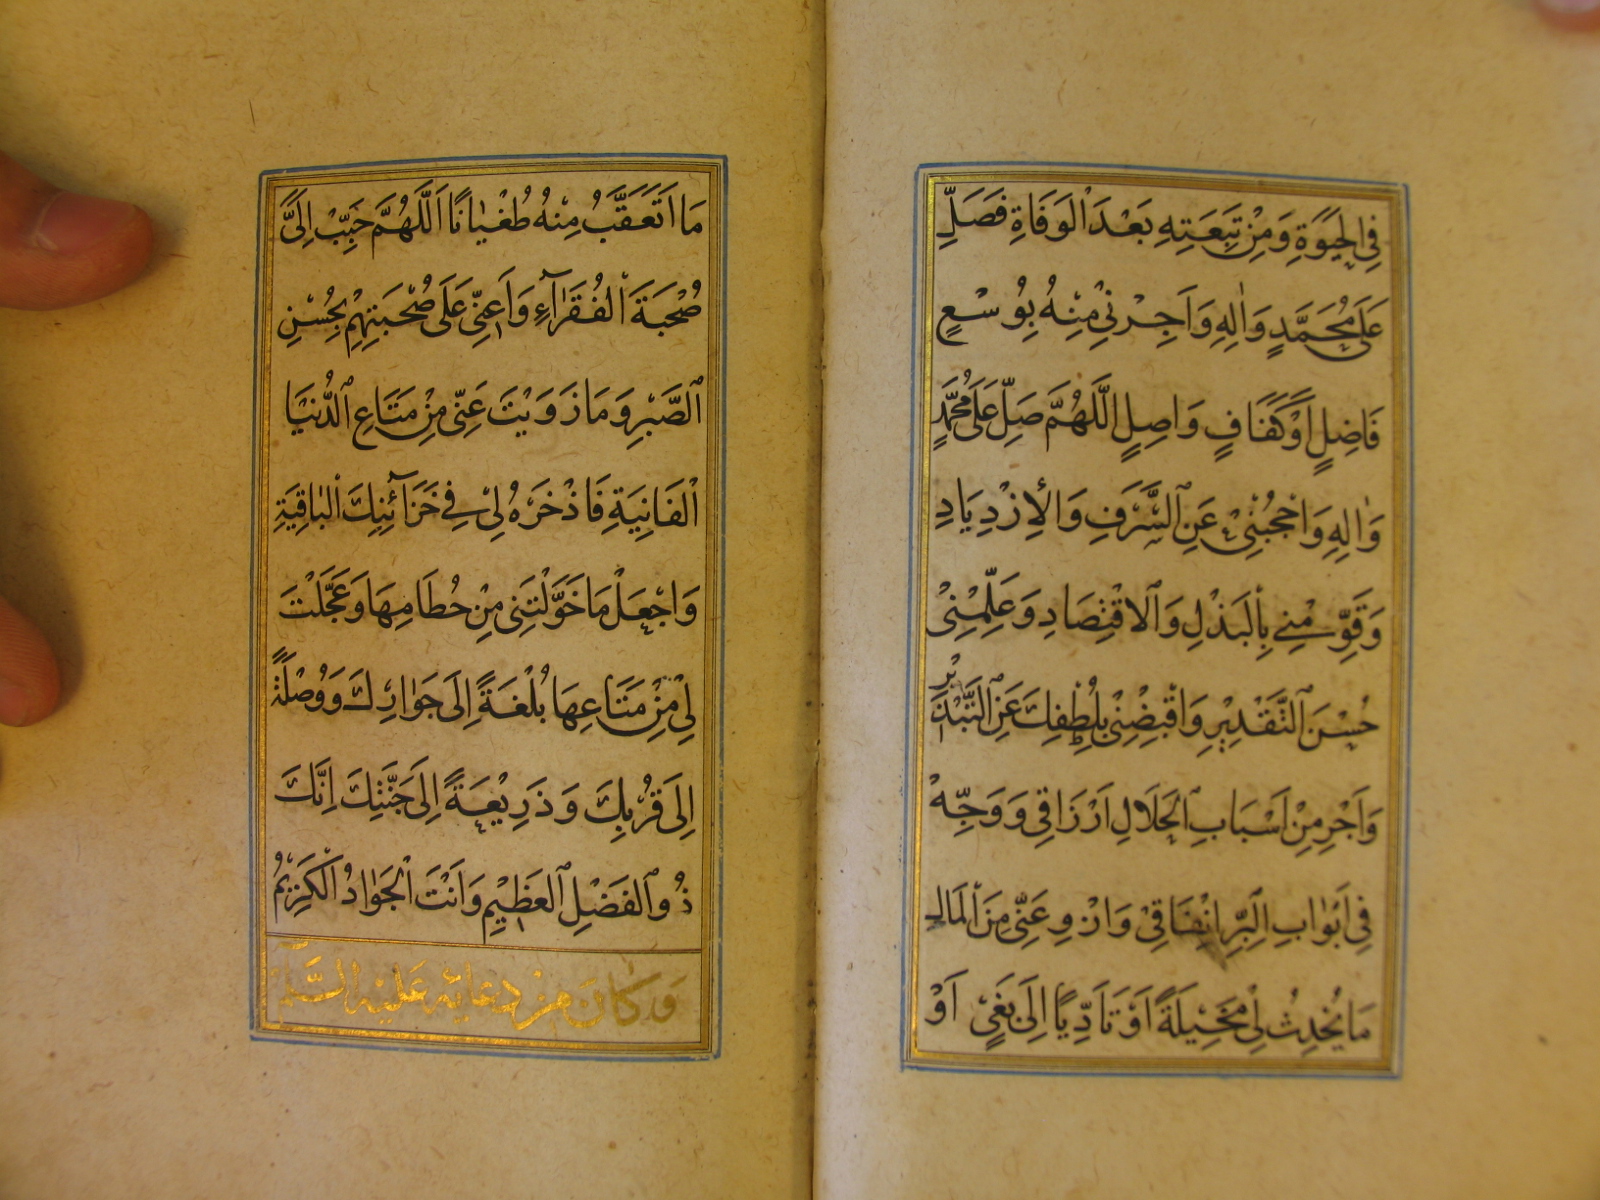 فِى الْحَيٰوةِ وَمِنْ تَبِعَتِهِ بَعْدَ الْوَفَاةِ فَصَلِّ
عَلٰى مُحَمَّدٍ وَاٰلِهِ وَاَجِرْنِىْ مِنْهُ بِوُسْعٍ
فَاضِلٍ اَوْ كَفَافٍ وَاصِلٍ اَللّٰهُمَّ صَلِّ عَلٰى مُحَمَّدٍ
وَاٰلِهِ وَاحْجُبْنِىْ عَنِ السَّرَفِ وَالْاِزْدِيَادِ
وَقَوِّمْنِى بِالْبَذْلِ وَالْاقْتِصَادِ وَعَلِّمْنِىْ
حُسْنَ التَّقْدِيْرِ وَاقْبِضْنِىْ بِلُطْفِكَ عَنِ التَّبْذِيْرِ
وَاَجْرِ مِنْ اَسْبَابِ الْحَلَالِ اَرْزَاقِى وَوَجِّهْ
فِى اَبْوَابِ الْبِرِّ اِنْفَاقِىْ وَازْوِ عَنِّى مِنَ الْمَالِ
مَا يُحْدِثُ لِىْ مَخِيْلَةً اَوْ تَاَدِّيًا اِلٰى بَغْىٍ اَوْ
مَا اَتَعَقَّبُ مِنْهُ طُغْيَانًا اَللّٰهُمَّ حَبِّبْ اِلَىَّ
صُحْبَةَ الْفُقَرَآءِ وَاَعِنِّى عَلٰى صُحْبَتِهِمْ بِحُسْنِ
الصَّبْرِ وَمَا زَوَيْتَ عَنِّى مِنْ مَتَاعِ الدُّنْيَا
الْفَانِيَةِ فَاذْخَرْهُ لِىْ فِى خَزَآئِنِكَ الْبَاقِيَةِ
وَاجْعَلْ مَا خَوَّلْتَنِى مِنْ حُطَامِهَا وَعَجَّلْتَ
لِىْ مِنْ مَتَاعِهَا بُلْغَةً اِلٰى جَوَارِكَ وَوُصْلَةً
اِلٰى قُرْبِكَ وَذَرِيْعَةً اِلٰى جَنَّتِكَ اِنَّكَ
ذُو الْفَضْلِ الْعَظِيْمِ وَاَنْتَ الْجَوَادُ الْكَرِيْمُ
وَكَانَ مِنْ دُعَائِهِ عَلَيْهِ السَّلَامُ